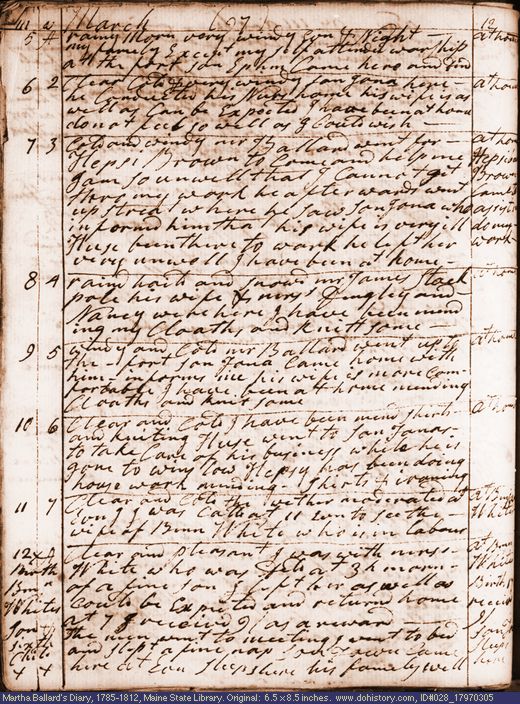 11 w March 1797 19
5 A rainy Morn very windy Even & Night - at home
my family Except my self attended worship
at the fort. Son Ephm Came here and
6 2 Clear Cold & windy. Son Jona here at home
he Conducted his home his wife is as
well as Can be Expected I have been at home
do not feel so well as I Could wish -
7 3 Cold and windy mr Ballard went for at home
Hepsi Brown to Come and help me Hepsi Brown
I am so unwell that I Cannot get Came to
thro my work he afterwards went assist
up Street where he saw Son Jona who do my
informd him that his wife is very ill work
Hitse been there to work he left her
very unwell I have been at home -
8 4 raind haild and snowd mr James Stack at home
pole his wife & mrs Dingley and
Nancy were here I have been mend
ing my Cloaths and knitt some -
9 5 windy and Cold mr Ballard went up to at home
the - fort Son Jona Came home with
him informs me his wife is more Com
fortable I have been at home mending
Cloaths and knit some
10 6 Clear and Cold I have been mend shirts at home
and knitting Hitse went to Son Jonas -
to take Care of his business while he is
gone to winslow Hepsy has been doing
house work mending shirts & ironing
11 7 Clear and Cold the wether moderated at at Benn
Evng I was Calld at 11 Evn to see the - Whites
wife of Benn White who is in Labour
12 A Clear and pleasant I was with mrss - at Benn
Birth White who was Delivd at 3 h morn - Whites
Benn of a fine son I left her as well as Birth
Whites Could be Expected and returnd home receivd
Son at 7 I receivd as a reward
the men went to meeting I went to bed Son
and Slept a fine nap Son Town Came Sleeps
here at Evn Sleeps here his family well here
Martha Ballard's Diary, 1785-1812, Maine State Library. Original: 6.5 x 8.5 inches. www.dohistory.com, ID#028_17970305